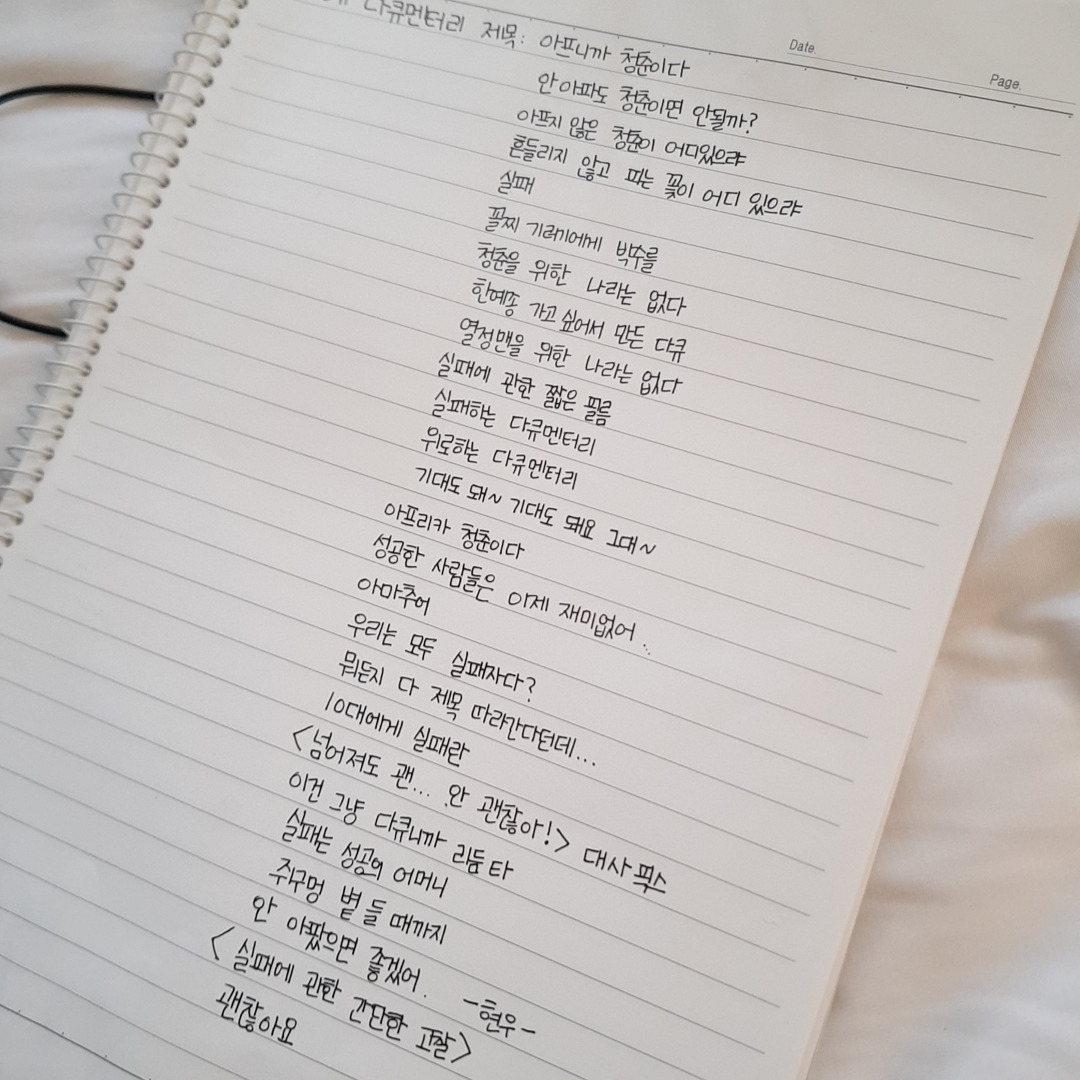 Date.
Page.
다큐멘터리 제목: 아프니까 청춘이다
안 아파도 청춘이면 안될까?
아프지 않은 청춘이 어디있으랴
흔들리지 않고 피는 꽃이 어디 있으랴
실패
꼴찌 기러기에게 박수를
청춘을 위한 나라는 없다
한예종 가고 싶어서 만든 다큐
열정맨을 위한 나라는 없다
실패에 관한 짧은 필름
실패하는 다큐멘터리
위로하는 다큐멘터리
기대도 돼~ 기대도 돼요 그대~
아프리카 청춘이다
성공한 사람들은 이제 재미없어..
아마추어
우리는 모두 실패자다?
뭐든지 다 제목 따라간다던데...
10대에게 실패란
<넘어져도 괜... 안 괜찮아!> 대사 픽스
이건 그냥 다큐니까 리듬 타
실패는 성공의 어머니
쥐구멍 볕 들 때까지
안 아팠으면 좋겠어. -현우-
<실패에 관한 간단한 고찰>
괜찮아요